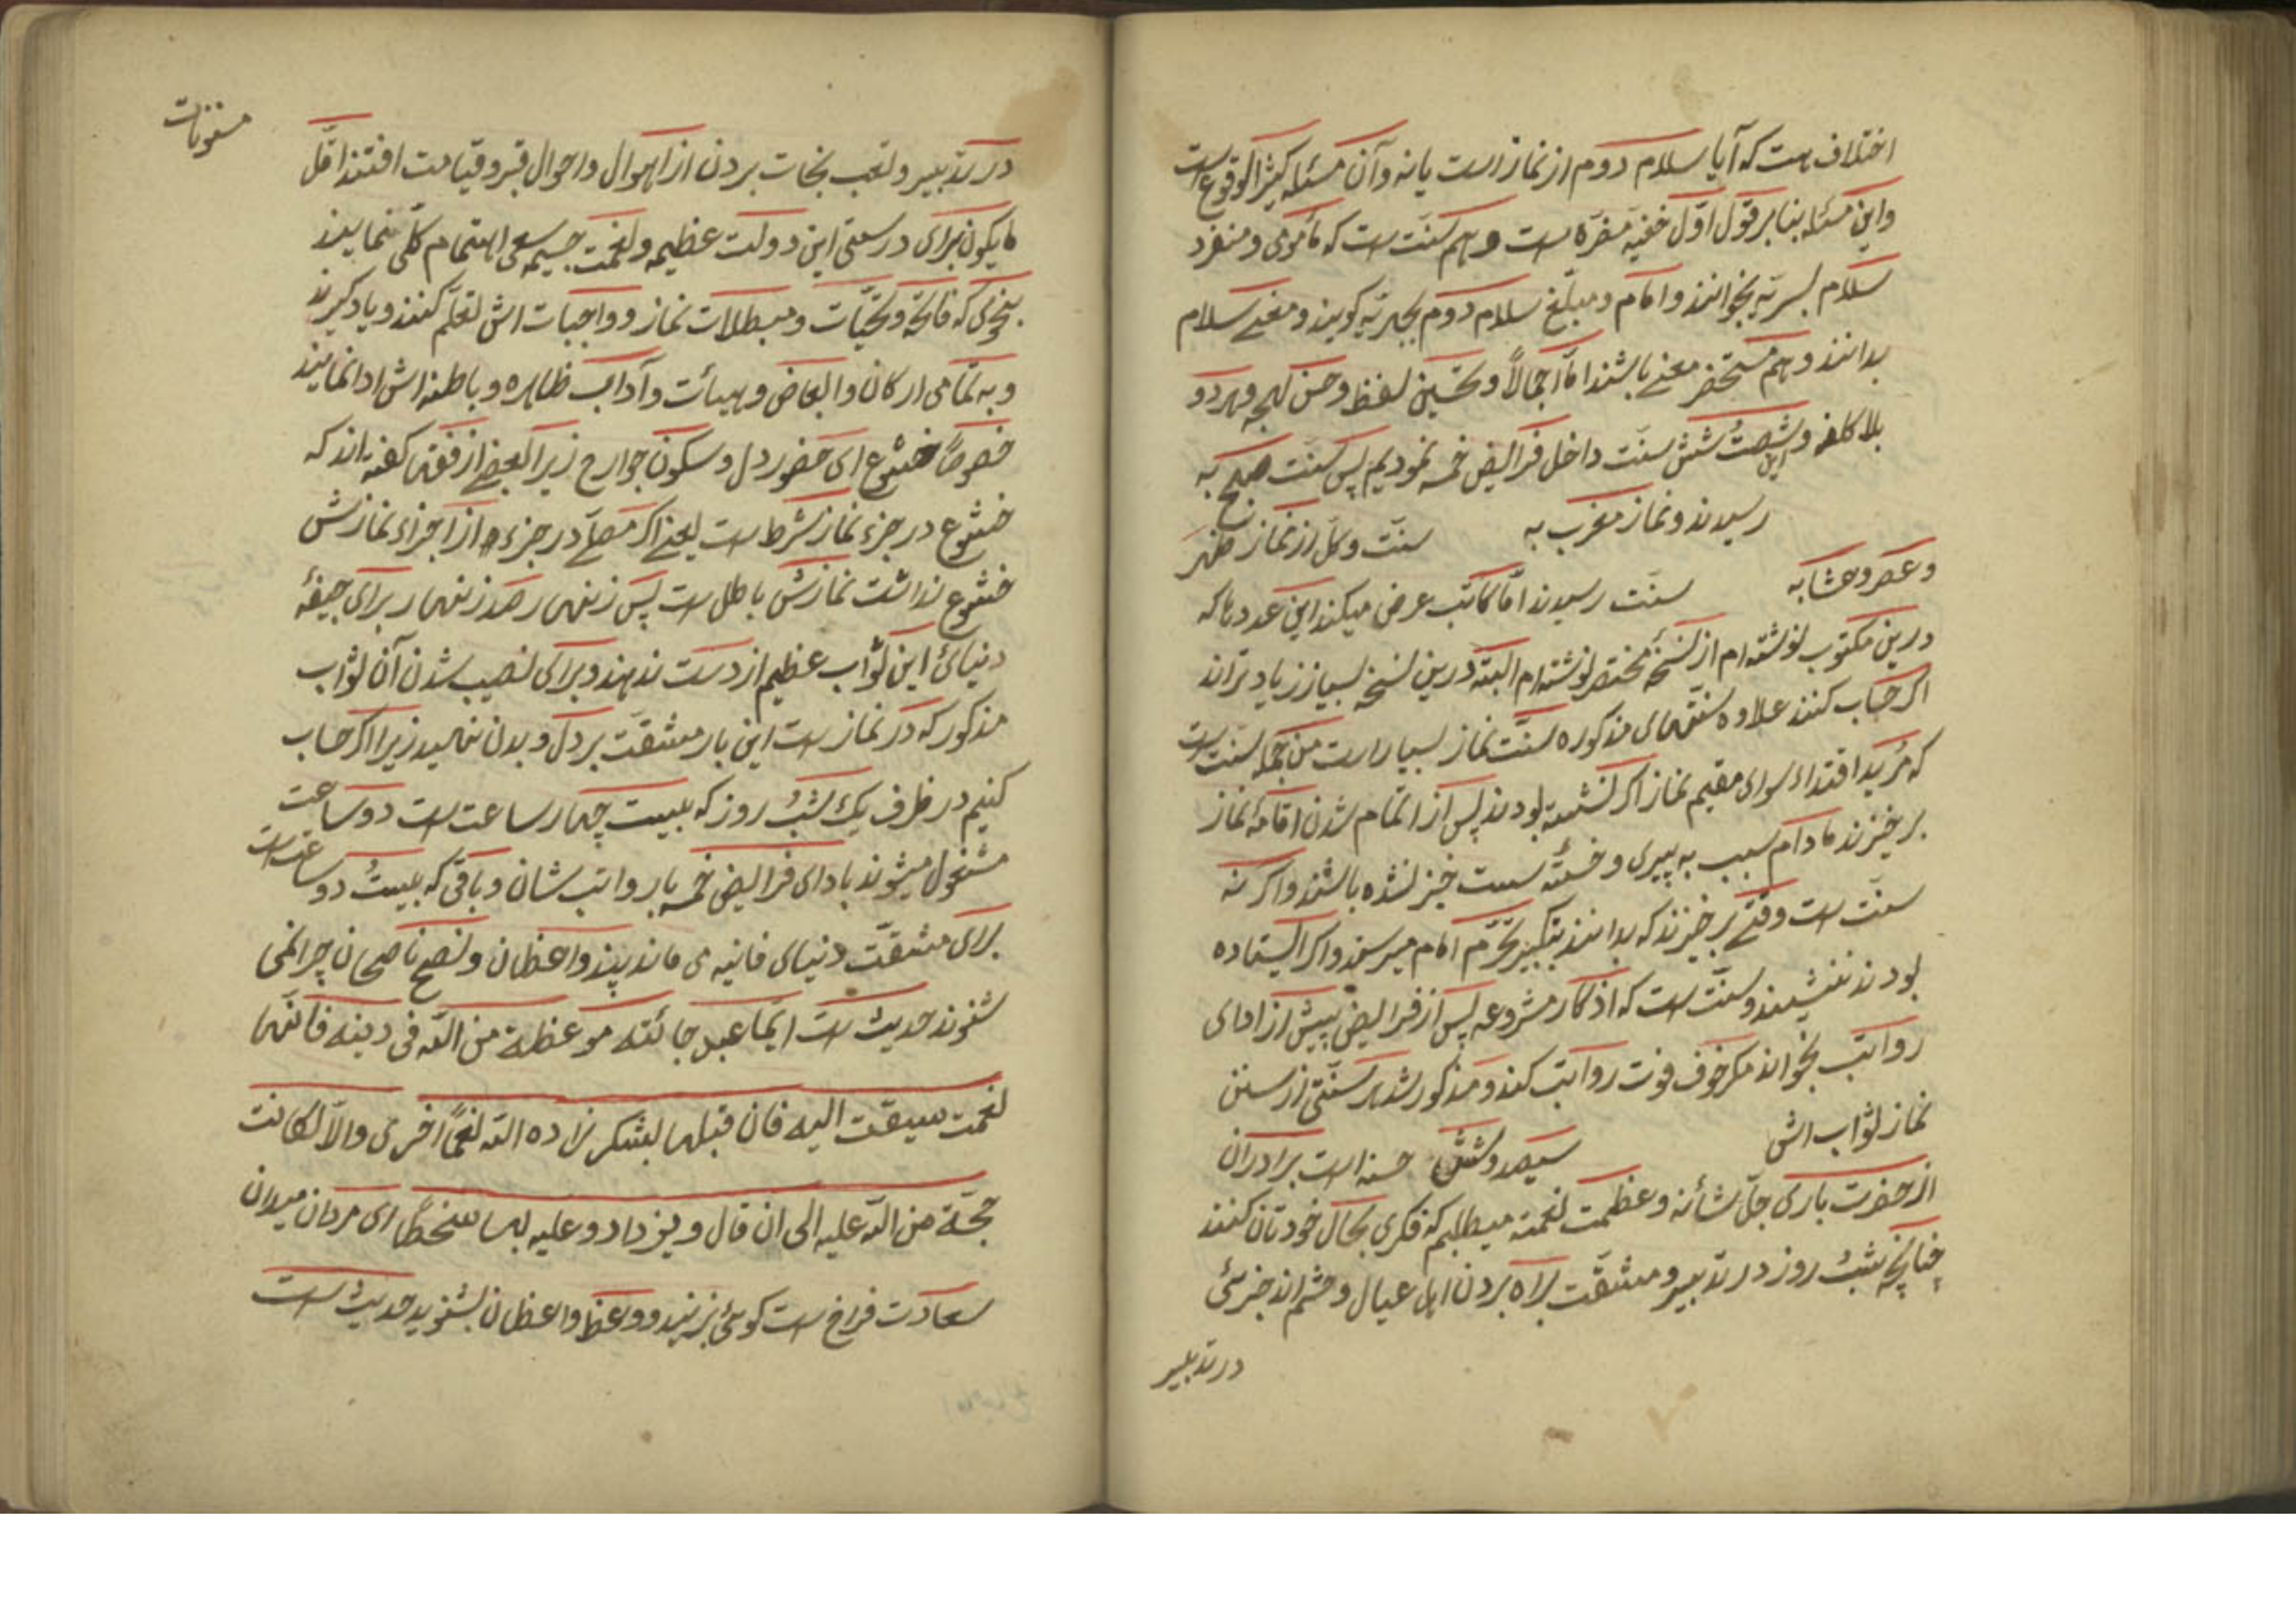 اختلاف هست که آیا سلام دوم از نماز است یا نه و آن مسئله کثیر الوقوع است
و این مسئله بنا بر قول اوّل خفیه مضرّه است و هم سنّت است که مأموم و منفرد
سلام بسریّه بخوانند و امام و مبلّغ سلام دوم بجهریّه گویند و معنی سلام
بدانند و هم مستحضر معنی باشند امّا اجمالاً و تحسین لفظ و حسن لهجه و هر دو
بلا کلفه و این شصتُ شش سنّت داخل فرائض خمسه نمودیم پس سنّت صبح به
رسیدند و نماز مغرب به سنّت و کلّ از نماز ظهر
و عصر و عشا به سنّت رسیدند امّا کاتب عرض میکند این عددها که
درین مکتوب نوشته‌ام از نسخهٔ مختصر نوشته‌ام البتّه درین نسخه بسیار زیادتراند
اگر حساب کنند علاوه سنّتهای مذکوره سنّت نماز بسیار است من جمله سنّت است
که مرید اقتداء سوای مقیم نماز اگر نشسته بودند پس از اتمام شدن اقامهٔ نماز
برخیزند مادام سبب به پیری و خسته سست خیز نشده باشند و اگر نه
سنّت است وقتی برخیزند که بدانند بتکبیر تحرّم امام میرسند و اگر ایستاده
بودند ننشینند و سنّت است که اذکار مشروعه پس از فرائض پیش از ادای
رواتب بخوانند مگر خوف فوت رواتب کند و مذکور شد هر سنّتی از سنن
نماز ثواب اش سیصد و شش حسنه است برادران
از حضرت باری جلّ شأنه و عظمت نعمته میطلبم که فکری بحال خودتان کنند
چنانچه شبُ روز در تدبیر و مشقّت براه بردن اهل عیال و حشم اند جزئی
در تدبیر
در تدبیر و تعب نجات بردن از اهوال و احوال قبر و قیامت افتند اقلّ
ما یکون برای درستی این دولت عظیمه و نعمت جسیمه سعی اهتمام کلّی نمایند
بنحوی که فاتحه و تحیّات و مبطلات نماز و واجبات اش تعلّم کنند و یاد گیرند
و به تمامی ارکان و ابعاض و هیئات و آداب ظاهره و باطنه اش ادا نمایند
خصوصاً خشوع ای حضور دل و سکون جوارح زیرا بعضی از فقها گفته اند که
خشوع در جزء نماز شرط است یعنی اگر مصلّی در جزء از اجزاء نمازش
خشوع نداشت نمازش باطل است پس زنهار صد زنهار برای جیفهٔ
دنیائی این ثواب عظیم از دست ندهند و برای نصیب شدن آن ثواب
مذکور که در نماز است این بار مشقّت بر دل و بدن نهالید زیرا اگر حساب
کنیم در ظرف یک شبُ روز که بیست چهار ساعت است دو ساعت
مشغول میشوند با دای فرائض خمسه با رواتب شان و باقی که بیستُ دو ساعت است
برای مشقّت دنیای فانیه می ماند پند واعظان و نصح ناصحان چرا نمی
شنوند حدیث است ایّما عبد جائته موعظة من اللّه فی دینه فانّها
نعمت سیقت الیه فان قبلها بشکر زاده اللّه نعماً اخری و الاّ لکانت
حجّة من اللّه علیه الی ان قال و یزداد و علیه بها سخطاً ای مردان میدان
سعادت فراخ است گوئی بزنید و وعظ واعظان بشنوید حدیث است